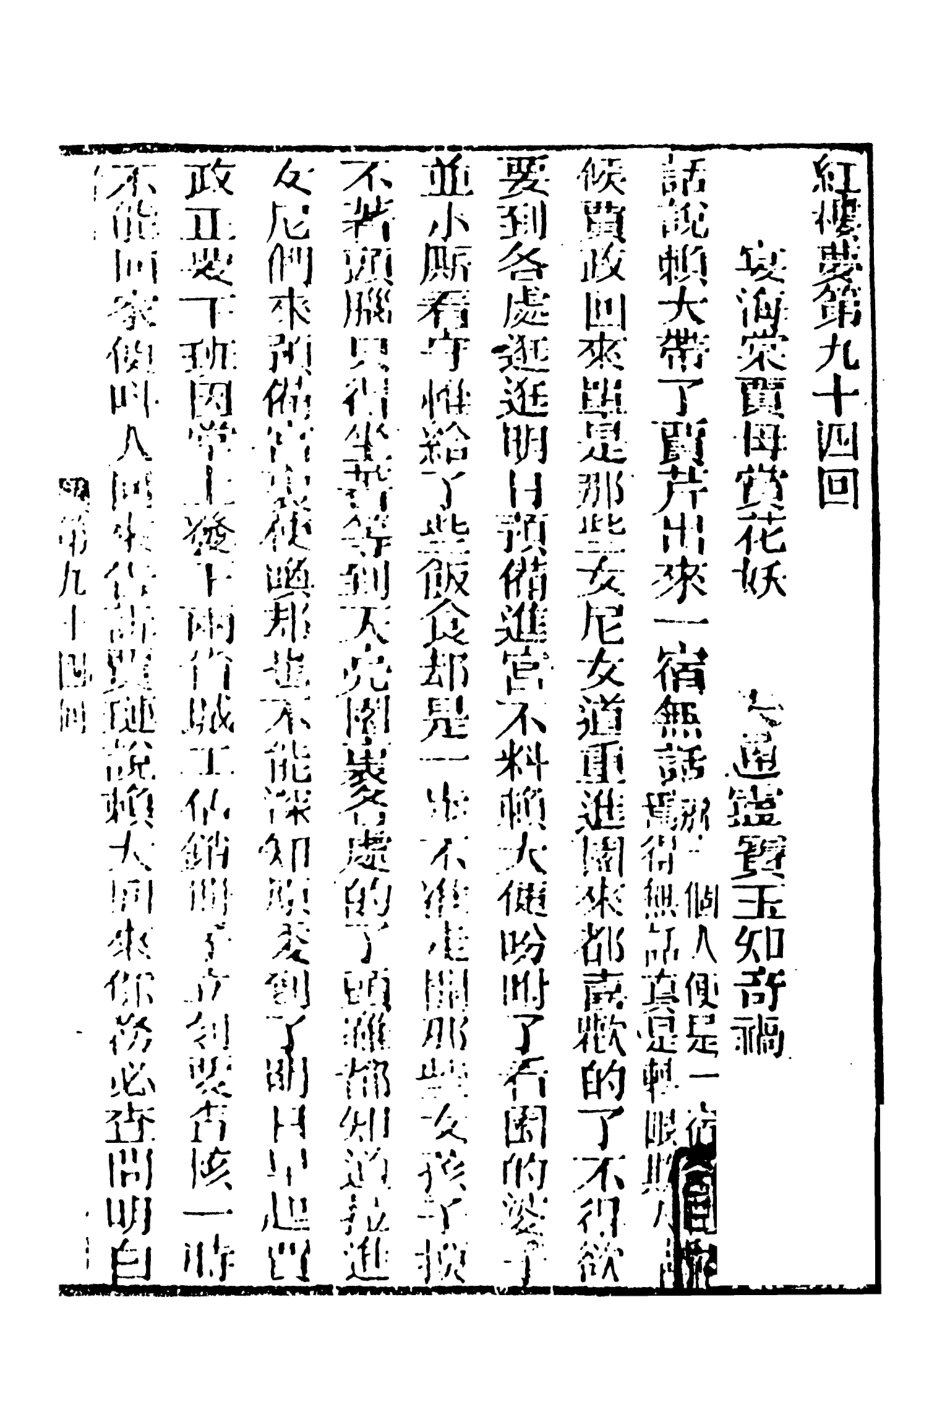 紅樓夢第九十四回
宴海棠賈母賞花妖 失通靈寶玉知奇禍
話說賴大帶了賈芹出來一宿無話那一個人便是一宿
焉得無話真是輕眼
候賈政回來單是那些女尼女道重進園來都喜歡的了不得欲
要到各處逛逛明日預備進宮不料賴大便吩咐了看園的婆子
並小厮看守惟給了些飯食却是一步不准走開那些女孩子摸
不著頭腦只得坐著等到天亮園裏各處的丫頭雖都知道拉進
女尼們來預備宮裏使喚却也不能深知原委到了明日早起賈
政正要下班因堂上發下兩省城工估銷冊子立刻要查核一時
不能回家便叫人回來告訴賈璉說賴大回來你務必查問明白
第九十四回